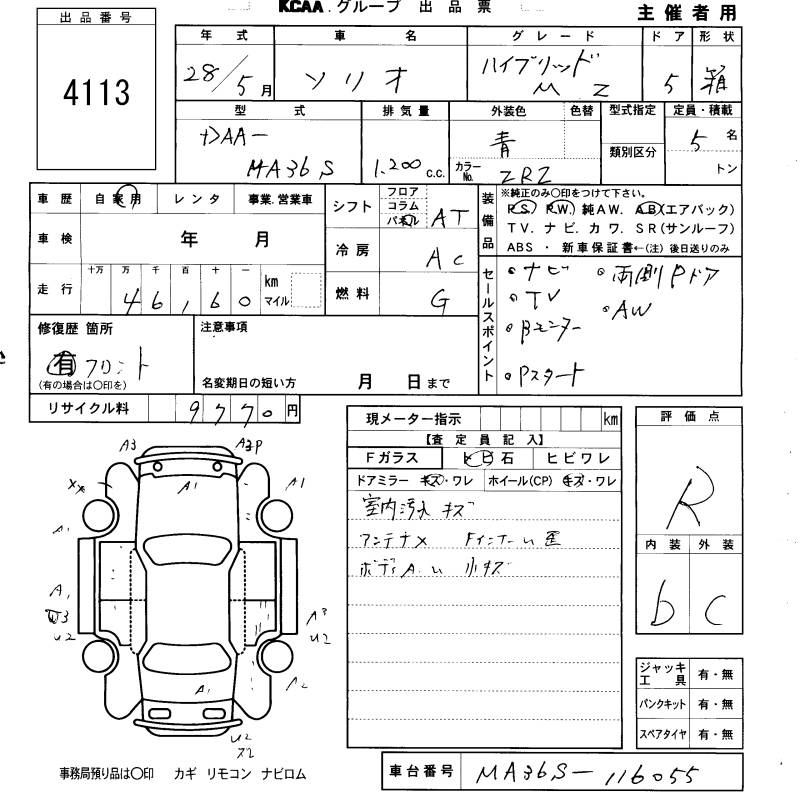 KCAA.グループ 出品票
主催者用
出品番号
4113
年式 車名 グレード ドア 形状
28/5月 ソリオ ハイブリッド MZ 5 箱
型式 排気量 外装色 色替 型式指定 定員・積載
DAA-
MA36S 1.200c.c. 青 類別区分 5名
カラーNo. ZRZ トン
車歴 自家用 レンタ 事業.営業車
シフト フロア コラム パネル AT
車検 年 月
冷房 AC
走行 十万 万 千 百 十 一
46,160 km マイル
燃料 G
装備品
※純正のみ○印をつけて下さい。
PS. PW. 純AW. AB(エアバック)
TV. ナビ. カワ. SR(サンルーフ)
ABS ・ 新車保証書←(注) 後日送りのみ
セールスポイント
・ナビ ・両側Pドア
・TV ・AW
・Bモニター
・Pスタート
修復歴 箇所
有 フロント
(有の場合は○印を)
注意事項
名変期日の短い方 月 日まで
リサイクル料 9770円
現メーター指示 km
【査定員記入】
Fガラス トビ石 ヒビワレ
ドアミラー キズ・ワレ ホイール(CP) キズ・ワレ
室内汚れ キズ
アンテナ× Fインナーu歪
ボディA.u 小キズ
評価点
R
内装 外装
b c
ジャッキ工具 有・無
パンクキット 有・無
スペアタイヤ 有・無
A3 A3P
XX A1 A1
A1
A1
W3 A3
U2 U2
A1 A2
U2
X2
事務局預り品は○印 カギ リモコン ナビロム
車台番号 MA36S-116055